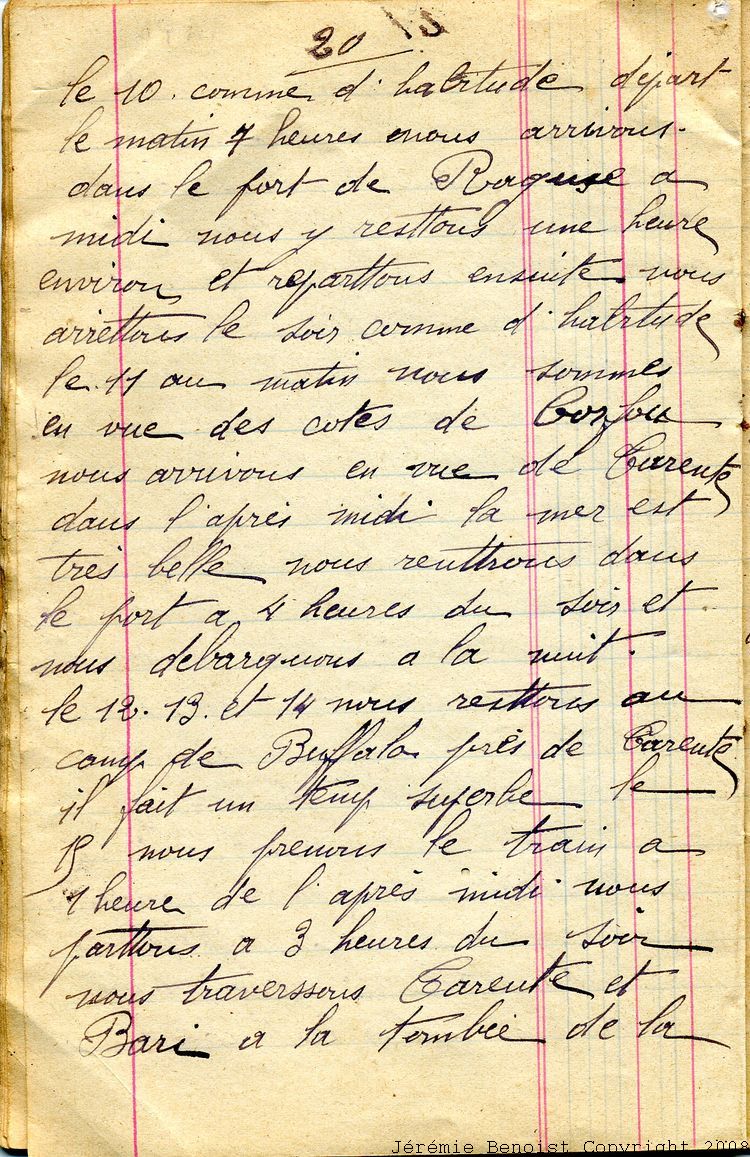 20
le 10. comme d'habitude départ
le matin 7 heures nous arrivons
dans le port de Raguse a
midi nous y resttons une heure
environ et reparttons ensuite nous
arrettons le soir comme d'habitude
le 11 au matin nous sommes
en vue des cotes de Corfou
nous arrivons en vue de Tarente
dans l'après midi la mer est
très belle nous renttrons dans
le port a 4 heures du soir et
nous debarquons a la nuit.
le 12. 13. et 14 nous resttons au
camp de Buffalo près de Tarente
il fait un temp superbe le
15 nous prenons le train a
1 heure de l'après midi nous
parttons a 3 heures du soir
nous traverssons Tarente et
Bari a la tombée de la
Jérémie Benoist Copyright 2008